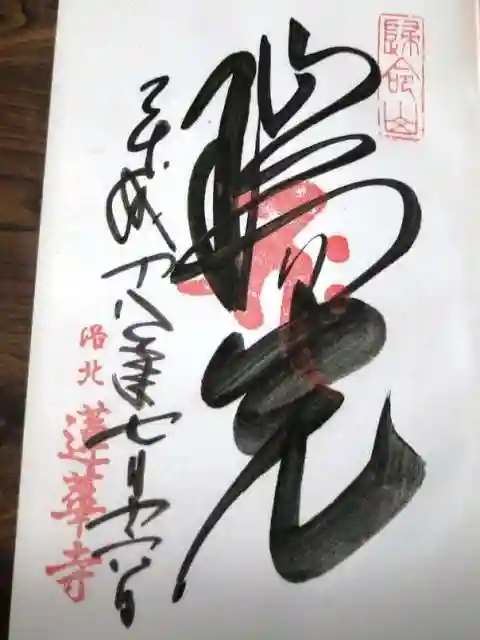 歸命山
瑞光
平成十八年七月
洛北
蓮華寺